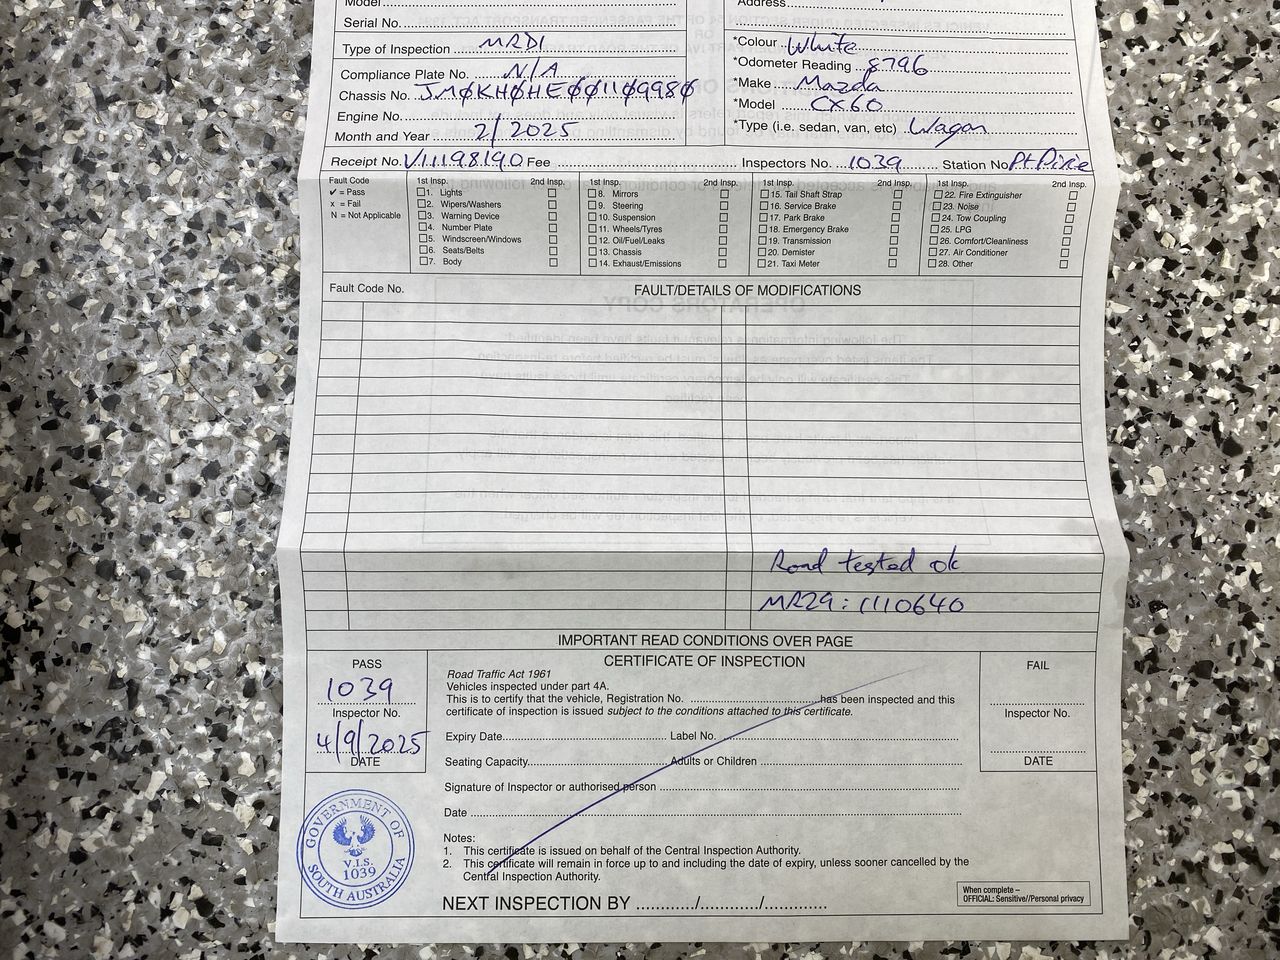 Model
Address
Serial No.
Type of Inspection MRD1
*Colour White
*Odometer Reading 8796
Compliance Plate No. N/A
*Make Mazda
Chassis No. JM0KH0HE001109980
*Model CX60
Engine No.
*Type (i.e. sedan, van, etc) Wagon
Month and Year 2/2025
Receipt No. V11198190 Fee Inspectors No. 1039 Station No. Pt Pirie
Fault Code
✔ = Pass
x = Fail
N = Not Applicable
1st Insp. 2nd Insp.
1. Lights
2. Wipers/Washers
3. Warning Device
4. Number Plate
5. Windscreen/Windows
6. Seats/Belts
7. Body
1st Insp. 2nd Insp.
8. Mirrors
9. Steering
10. Suspension
11. Wheels/Tyres
12. Oil/Fuel/Leaks
13. Chassis
14. Exhaust/Emissions
1st Insp. 2nd Insp.
15. Tail Shaft Strap
16. Service Brake
17. Park Brake
18. Emergency Brake
19. Transmission
20. Demister
21. Taxi Meter
1st Insp. 2nd Insp.
22. Fire Extinguisher
23. Noise
24. Tow Coupling
25. LPG
26. Comfort/Cleanliness
27. Air Conditioner
28. Other
Fault Code No. FAULT/DETAILS OF MODIFICATIONS
Road tested ok
MR29: 1110640
IMPORTANT READ CONDITIONS OVER PAGE
PASS
1039
Inspector No.
4/9/2025
DATE
CERTIFICATE OF INSPECTION
Road Traffic Act 1961
Vehicles inspected under part 4A.
This is to certify that the vehicle, Registration No. has been inspected and this
certificate of inspection is issued subject to the conditions attached to this certificate.
Expiry Date Label No.
Seating Capacity Adults or Children
Signature of Inspector or authorised person
Date
Notes:
1. This certificate is issued on behalf of the Central Inspection Authority.
2. This certificate will remain in force up to and including the date of expiry, unless sooner cancelled by the
Central Inspection Authority.
NEXT INSPECTION BY ........../........../..........
FAIL
Inspector No.
DATE
GOVERNMENT OF
V.I.S.
1039
SOUTH AUSTRALIA
When complete –
OFFICIAL: Sensitive//Personal privacy